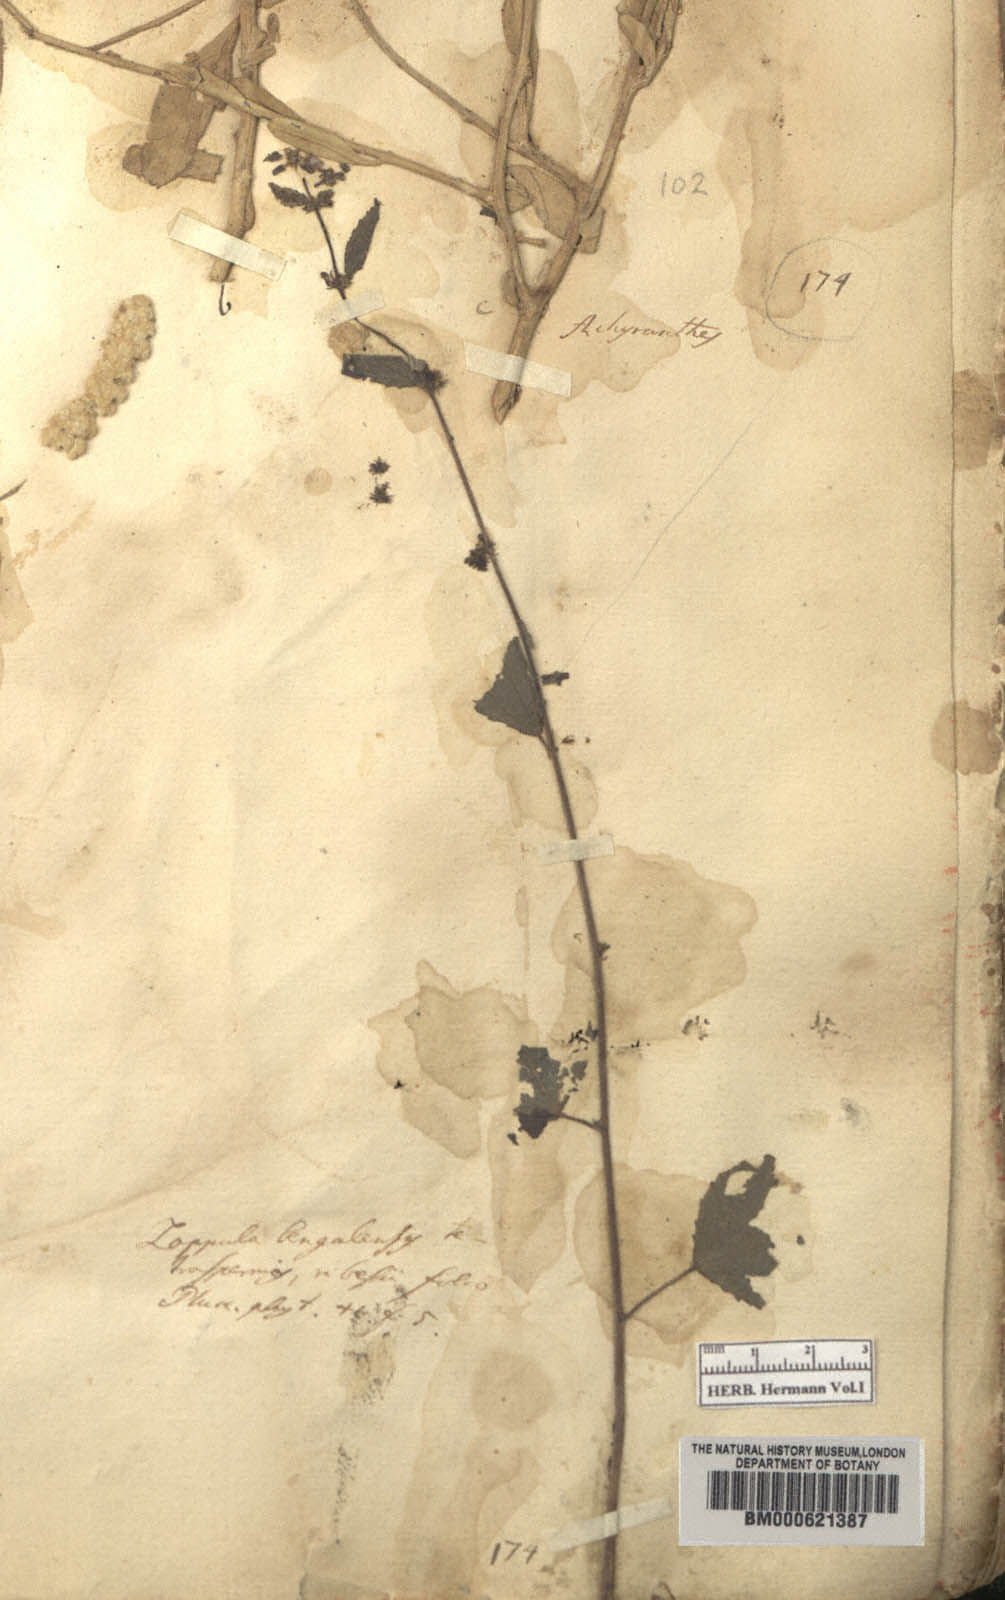 102
174
c
Achyranthes
Lappula bengalensis te-
traspermos, ribesii folio
Pluk. phyt. 41. f. 5.
mm 1 2 3
HERB. Hermann Vol.I
THE NATURAL HISTORY MUSEUM,LONDON
DEPARTMENT OF BOTANY
BM000621387
174